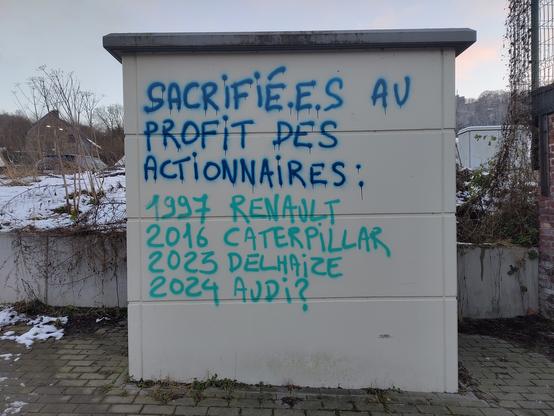 SACRIFIÉ.E.S AU
PROFIT DES
ACTIONNAIRES:
1997 RENAULT
2016 CATERPILLAR
2023 DELHAIZE
2024 AUDI?